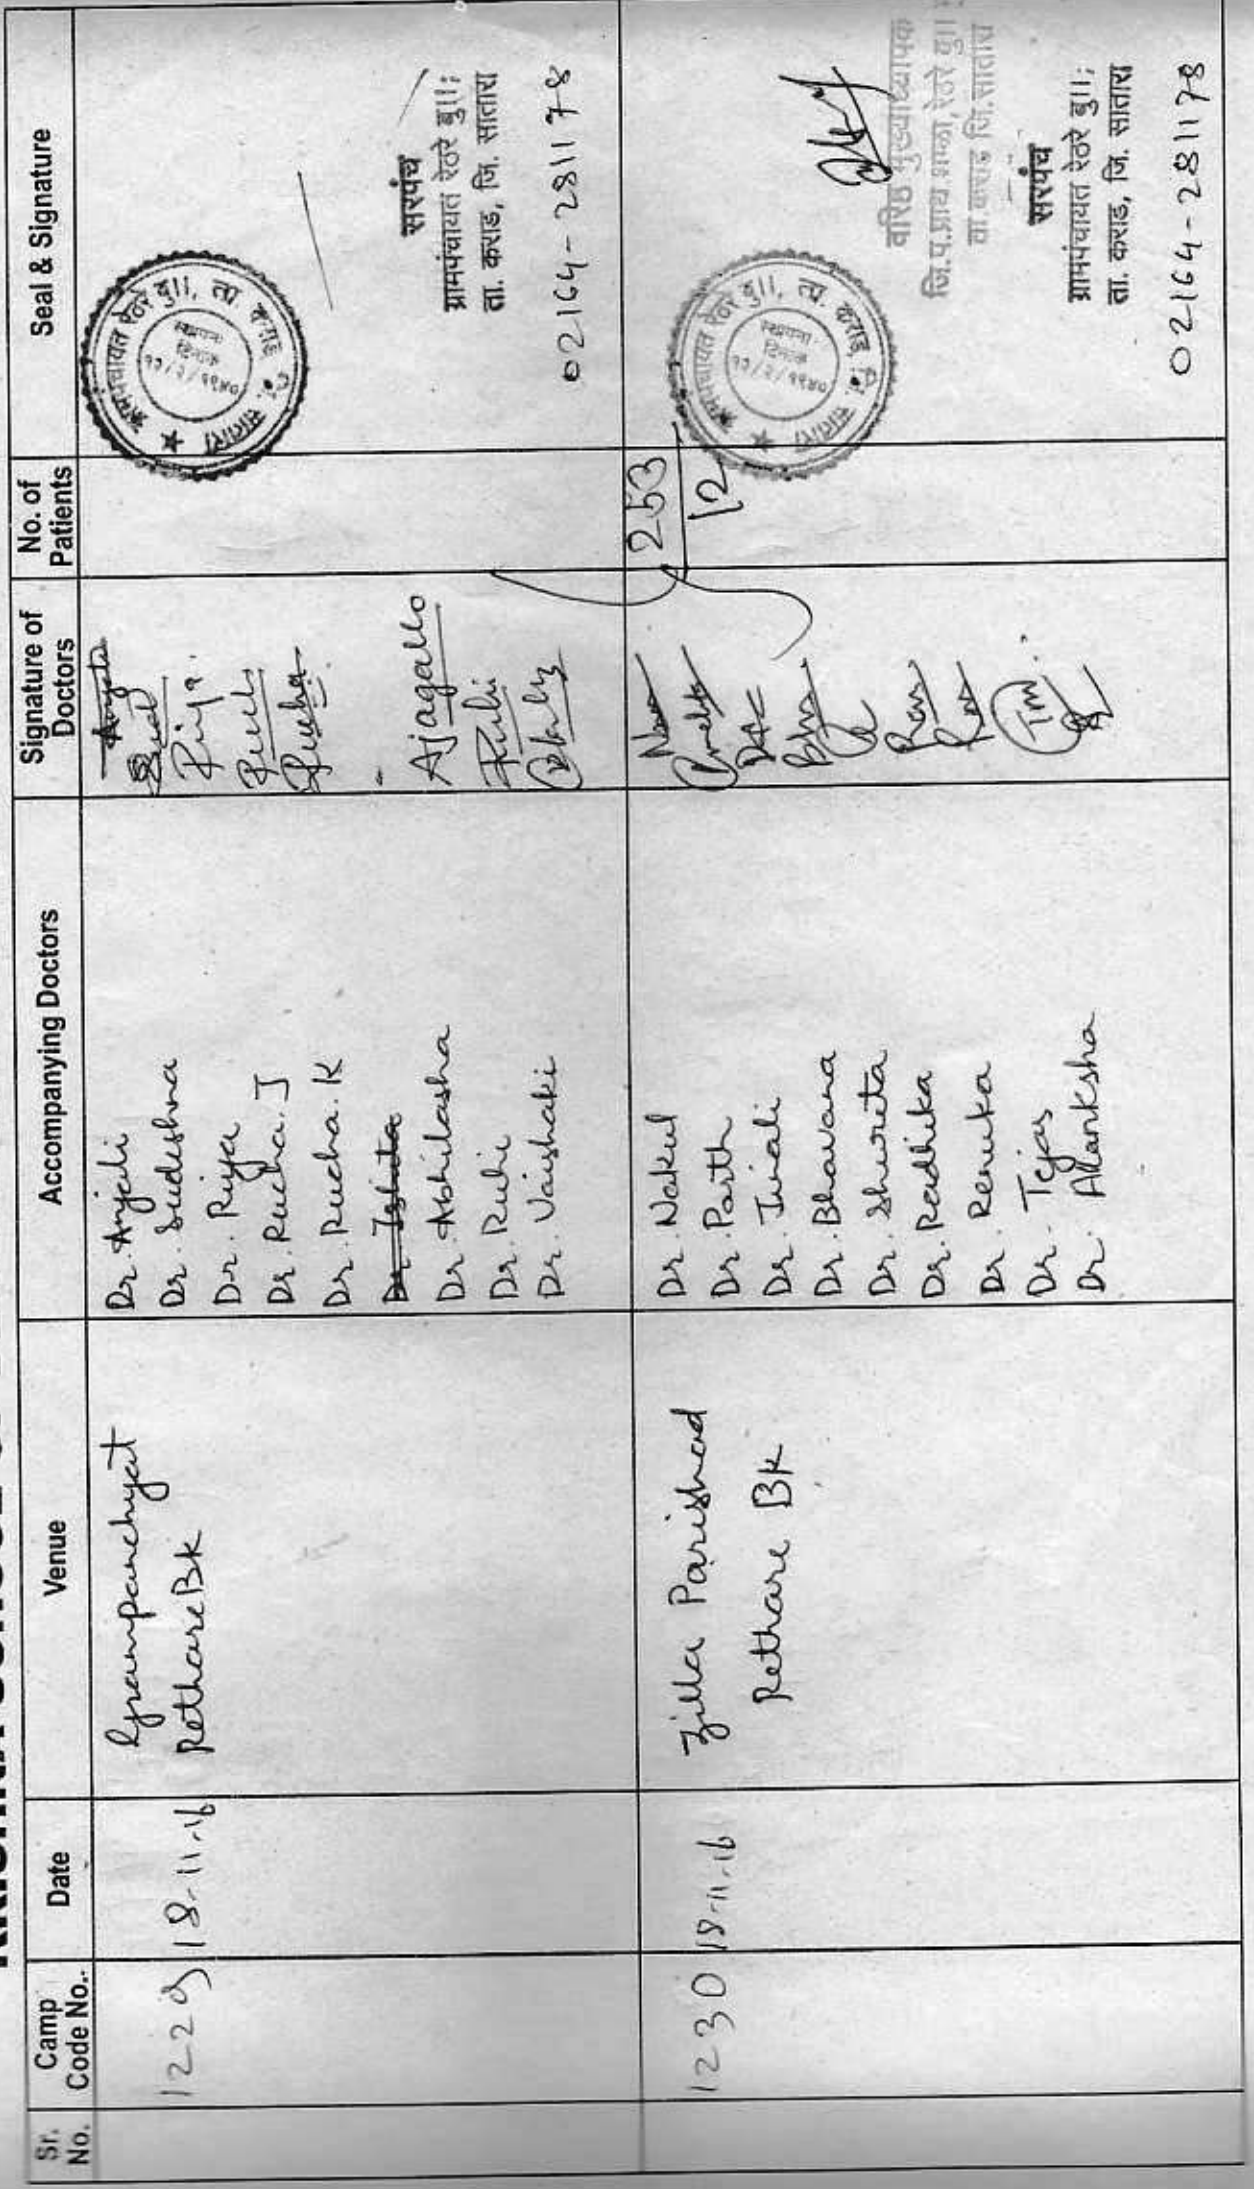 Sr. No.
Camp Code No.
Date
Venue
Accompanying Doctors
Signature of Doctors
No. of Patients
Seal & Signature
1229
18-11-16
Grampanchyat
Rethare BK
Dr. Anjali
Dr. Sudeshna
Dr. Riya
Dr. Rucha. J
Dr. Rucha. K
Dr. Ishita
Dr. Abhilasha
Dr. Ruhi
Dr. Vaishaki
Riya.
Rucha
Ajagallo
Ruhi
ग्रामपंचायत रेठरे बु॥, ता. कराड, जि. सातारा
स्थापना
दिनांक
१२/२/१९४०
सरपंच
ग्रामपंचायत रेठरे बु॥;
ता. कराड, जि. सातारा
02164-281178
1230
18-11-16
Zilla Parishad
Rethare BK
Dr. Nakul
Dr. Parth
Dr. Jinali
Dr. Bhavana
Dr. Shweta
Dr. Radhika
Dr. Renuka
Dr. Tejas
Dr. Akanksha
253
12
ग्रामपंचायत रेठरे बु॥, ता. कराड, जि. सातारा
स्थापना
दिनांक
१२/२/१९४०
वरिष्ठ मुख्याध्यापक
जि.प.प्राथ शाळा, रेठरे बु॥
ता.कराड जि.सातारा
सरपंच
ग्रामपंचायत रेठरे बु॥;
ता. कराड, जि. सातारा
02164-281178